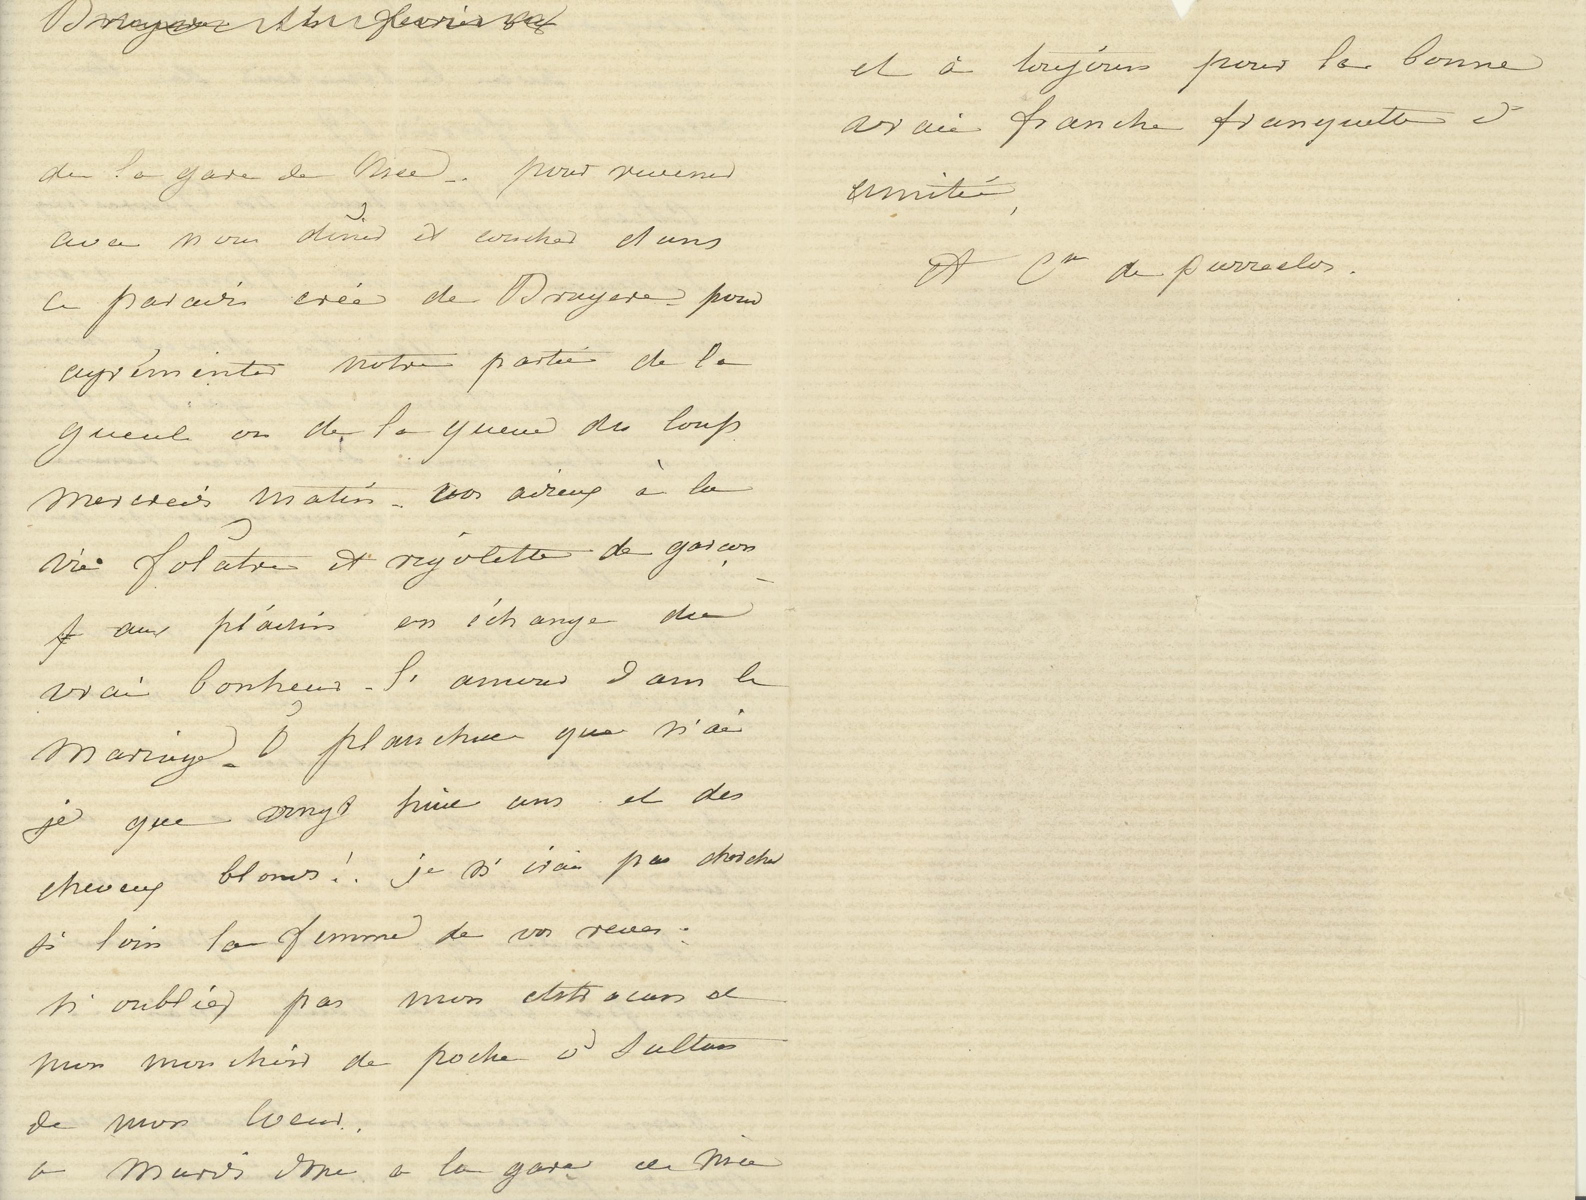 Bruyère février
de la gare de Nice - pour revenir
avec nous dîner et coucher dans
ce paradis créé de Bruyere - pour
agrémenter notre partie de la
gueule ou de la queue du loup
mercredi matin - vos aieux à la
vie folâtre et rigolette de garçon
aux plaisirs en échange du
vrai bonheur - l'amour dans le
mariage - Ô planchue que n'ai
je que vingt huit ans et des
cheveux blonds! . je n'irais pas chercher
si loin la femme de vos reves .
n'oubliez pas mon et
mon mouchoir de poche ô Sultan
de mon coeur .
a Mardi donc a la gare de Nice
et à toujours pour la bonne
vraie franche franquette d'
amitié,
de Pierreclos .